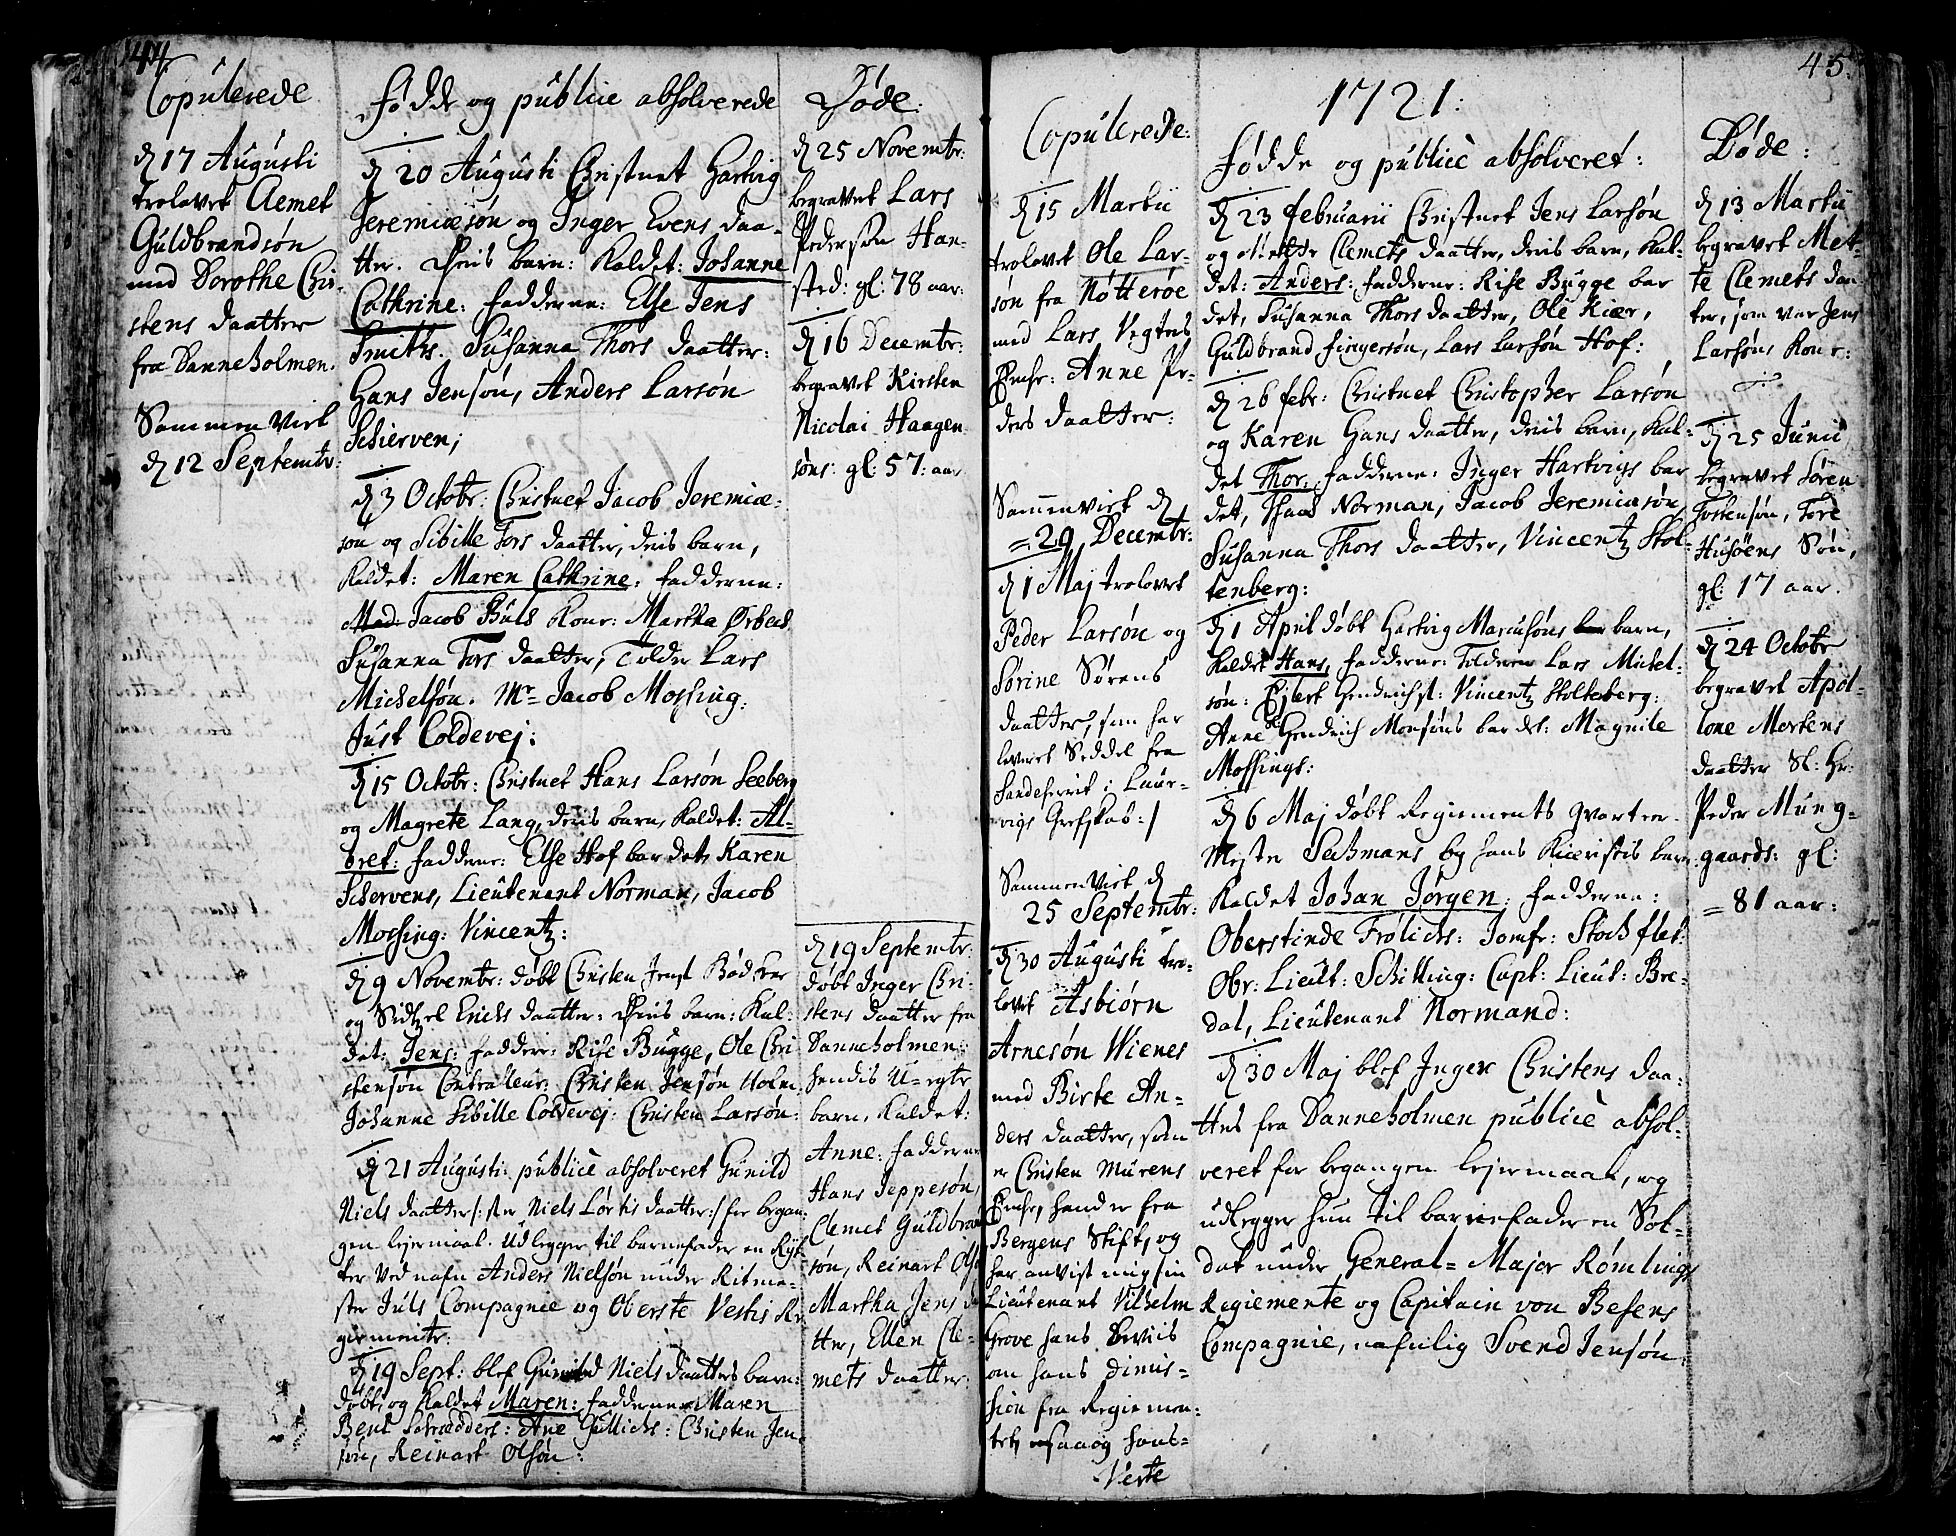 44.
Copulerede
d 17 Augusti
trolovet Clemet
Guldbrandsøn
med Dorothe Chri-
stens daatter
fra Danneholmen.
Sammen viet
d 12 Septembr:
Fødde og publicè absolverede
d 20 Augusti Christnet Hartvig
Jeremiæsøn og Inger Evens daa-
tter. Deris barn: Kaldet: Johanne
Cathrine: fadderne: Else Jens
Smiths. Susanna Thors daatter:
Hans Jensøn, Anders Larsøn
Schierven;
d 3 Octobr: Christnet Jacob Jeremiæ-
søn og Sibille Tors daatter, deris barn,
Kaldet: Maren Cathrine: fadderne:
Mad: Jacob Buls Kone: Martha Ørbeck
Susanna Tors daatter, Tolder Lars
Michelsøn. Mr Jacob Mossing.
Just Coldevej:
d 15 Octobr: Christnet Hans Larsøn Seeberg
og Magrete Lang, deris barn, Kaldet: Al-
bret: fadderne: Else Hof bar det, Karen
Schervens, Lieutenant Norman, Jacob
Mossing: Vincentz:
d 9 Novembr: døbt Christen Jenss: Bødker
og Sidtzel Erichs daatter: Deris barn: Kal-
det: Jens: faddere: Rise Bugge, Ole Chri-
stensøn Controlleur: Christen Jensøn Holm
Johanne Sibille Coldevej: Christen Larsøn:
d 21 Augusti: publicè absolveret Gunild
Niels daatter /: ster Niels Lørtis daatter:/ for began-
gen lejermaal. Udlegger til barnefader en Ryt-
ter ved nafn Anders Nielsøn under Ritme-
ster Juls Compagnie og Oberste Vestis Re-
giemente:
d 19 Sept: blef Gunild Niels daatters barn:
døbt, og Kaldet Maren: fadderne Maren
Bent Schrædders: Ane Gullichs: Christen Jen-
søn, Reinart Olsøn:
Døde:
d 25 Novembr:
begravet Lars
Pedersøn Han-
sted: gl: 78 aar:
d 16 Decembr:
begravet Kirsten
Nicolai Haagen
søns: gl: 57: aar
d 19 Septembr:
døbt Inger Chri-
stens daatter fra
Danneholmen:
hendis U-egte
barn, Kaldet:
Anne: fadderne
Hans Jeppesøn,
Clemet Guldbrand
søn, Reinart Olsø
Martha Jens d
tter, Ellen Cle-
mets daatter:
45.
1721:
Copulerede:
d 15 Martii
trolovet Ole Lar-
søn fra Nøtterøe
med Lars Vegtes
Encke: Anne Pe-
ders daatter:
Sammenviet d
= 29 Decembr:
d 1 Maj trolovet
Peder Larsøn og
Sørine Sørens
daatter, som har
leveret Seddel fra
Sandeherrit i Laur-
vigs Grefskab:/
Sammenviet d
25 Septembr:
d 30 Augusti tro-
lovet Asbiørn
Arnesøn Wienes
med Birte An-
ders daatter, som
er Christen Murens
Encke, hand er fra
Bergens Stift, og
har anvist mig sin
Lieutenant Vilhelm
Grove hans Beviis
om hans Dimis-
sion fra Regiemen-
tet, saaog hans-
Verte
Fødde og publicè absolveret:
d 23 februarii Christnet Jens Larsøn
og Mette Clemets daatter, deris barn, Kal-
det: Anders: fadderne: Rise Bugge bar
det, Susanna Thors daatter, Ole Kiær,
Guldbrand fingersøn, Lars Larsøn Hof:
d 26 febr: Christnet Christopher Larsøn
og Karen Hans daatter, deris barn, Kal-
det Thor: fadderne: Inger Hartvigs bar
det, Thaas Norman, Jacob Jeremiæsøn,
Susanna Thors daatter, Vincentz Stol-
tenberg:
d 1 April døbt Hartvig Marcusøns bar barn,
Kaldet Hans, fadderne: Tolderen Lars Michel-
søn: Ejlert Hendrichs: Vincentz Stoltenberg:
Anne Hendrich Monsøns bar det: Magnile
Mossings:
d 6 Maj døbt Regiements Qvarteer-
Mester Sechmans og hans Kieristis barn
Kaldet Johan Jørgen: fadderne:
Oberstinde Frølichs: Jomfr: Stochflet:
Obr: Lieut: Schilling: Capt: Lieut: Bre-
dal, Lieutenant Normand:
d 30 Maj blef Inger Christens daa-
tter fra Danneholmen publicè absol-
veret for begangen lejermaal, og
udlegger hun til barnefader en Sol-
dat under General-Major Rømlings
Regiemente og Capitain von Besens
Compagnie, nafnlig Svend Jensøn.
Døde:
d 13 Martii
begravet Met-
te Clemets daa-
tter, som var Jens
Larsøns Kone:
d 25 Junii
begravet Søren
Tostensøn, Tore
Husøens Søn,
gl: 17 aar.
d 24 Octobr
begravet Apol-
lone Mortens
daatter Sl: Hr:
Peder Mung-
gaards: gl:
= 81 aar: